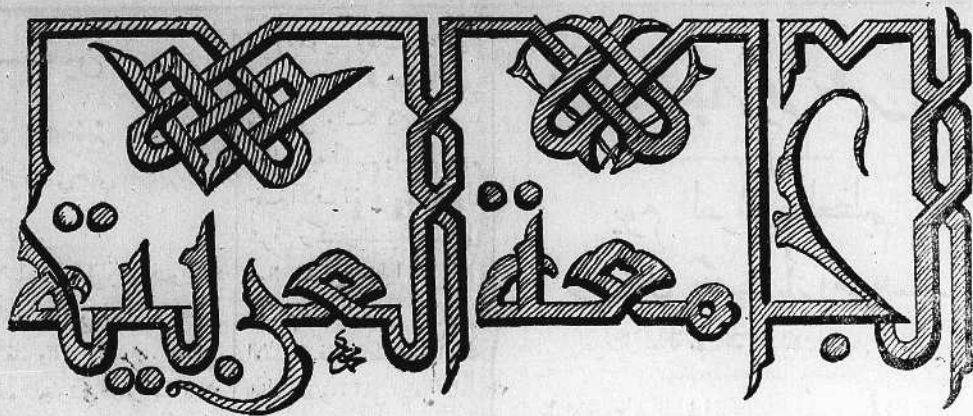 الجامعة العربية